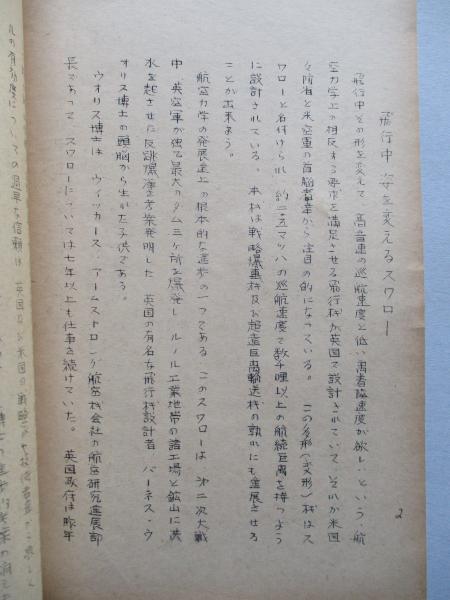 飛行中 姿を変えるスワロー
飛行中その形を変えて、高音速の巡航速度と低い離着陸速度が欲しいという、航
空力学上の相反する要求を満足させる飛行機が英国で設計されていて、それが米国
々防省と米空軍の首脳者達から注目の的になっている。この多形(変形)機はス
ワローと名付けられ、約二・五マッハの巡航速度で数千哩以上の航続距離を持つよう
に設計されている。本機は戦略爆撃機及び超遠距離輸送機の孰れにも進展させう
ることが出来よう。
航空力学の発展史上の根本的な進歩の一つである このスワローは 第二次大戦
中 英空軍が独で最大のダム三ヶ所を爆発し ルール工業地帯の諸工場と鉱山に洪
水を起させた反跳爆弾を考案発明した 英国の有名な飛行機設計者 バーネス・ウ
オリス博士の頭脳から生れた子供である。
ウオリス博士は ヴィッカース・アームストロング航空機会社の航空研究進展部
長であって スワローについては七年以上も仕事を続けていた。英国政府は昨年
2